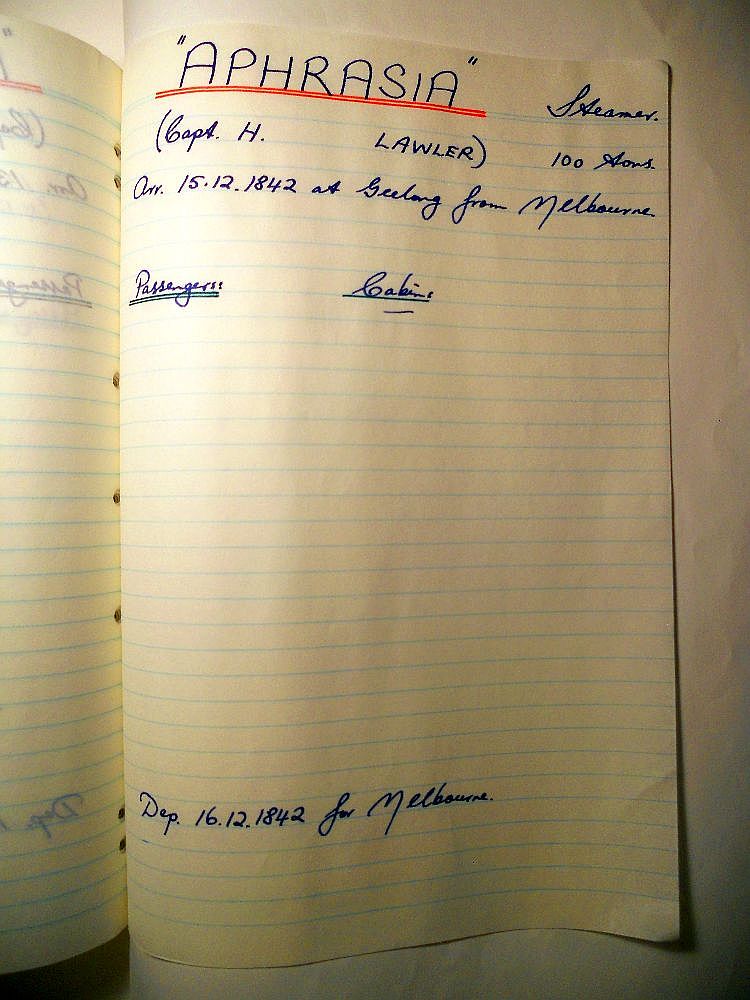 "APHRASIA" Steamer.
(Capt. H. LAWLER) 100 tons.
Arr. 15.12.1842 at Geelong from Melbourne.
Passengers: Cabin:
Dep. 16.12.1842 for Melbourne.